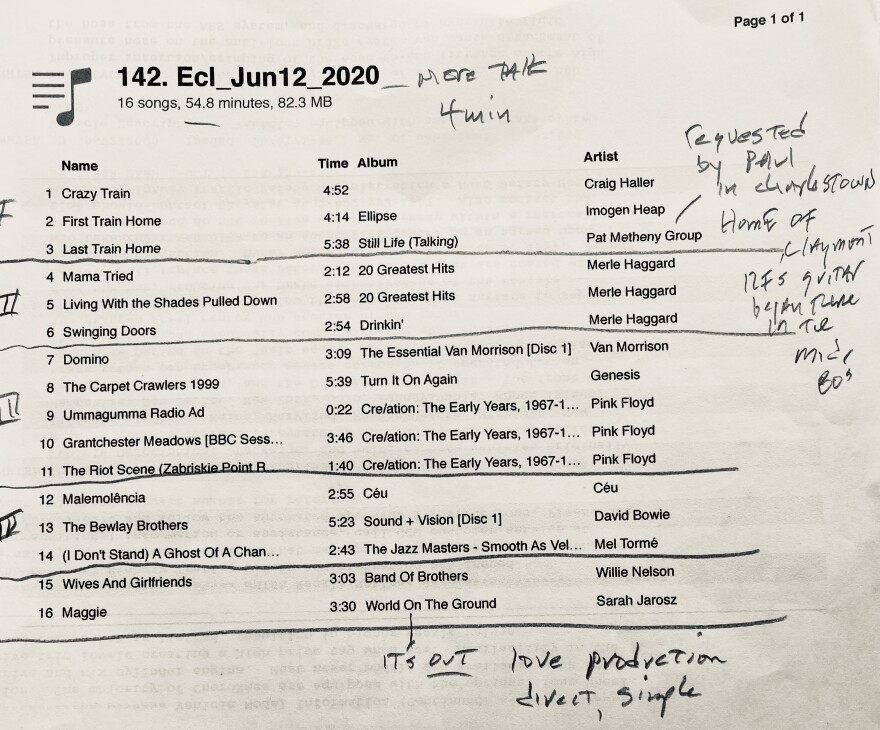 Page 1 of 1
142. Ecl_Jun12_2020 _ MORE TALK
16 songs, 54.8 minutes, 82.3 MB
4 min
requested
by PAUL
in charlestown
HOME OF
CLAYMONT
guitar
began there
in the
mid
80s
Name Time Album Artist
1 Crazy Train 4:52 Craig Haller
I
2 First Train Home 4:14 Ellipse Imogen Heap
3 Last Train Home 5:38 Still Life (Talking) Pat Metheny Group
4 Mama Tried 2:12 20 Greatest Hits Merle Haggard
II
5 Living With the Shades Pulled Down 2:58 20 Greatest Hits Merle Haggard
6 Swinging Doors 2:54 Drinkin' Merle Haggard
7 Domino 3:09 The Essential Van Morrison [Disc 1] Van Morrison
8 The Carpet Crawlers 1999 5:39 Turn It On Again Genesis
9 Ummagumma Radio Ad 0:22 Cre/ation: The Early Years, 1967-1… Pink Floyd
10 Grantchester Meadows [BBC Sess… 3:46 Cre/ation: The Early Years, 1967-1… Pink Floyd
11 The Riot Scene (Zabriskie Point R… 1:40 Cre/ation: The Early Years, 1967-1… Pink Floyd
12 Malemolência 2:55 Céu Céu
13 The Bewlay Brothers 5:23 Sound + Vision [Disc 1] David Bowie
14 (I Don't Stand) A Ghost Of A Chan… 2:43 The Jazz Masters - Smooth As Vel… Mel Tormé
15 Wives And Girlfriends 3:03 Band Of Brothers Willie Nelson
16 Maggie 3:30 World On The Ground Sarah Jarosz
IT'S OUT love production
direct, simple